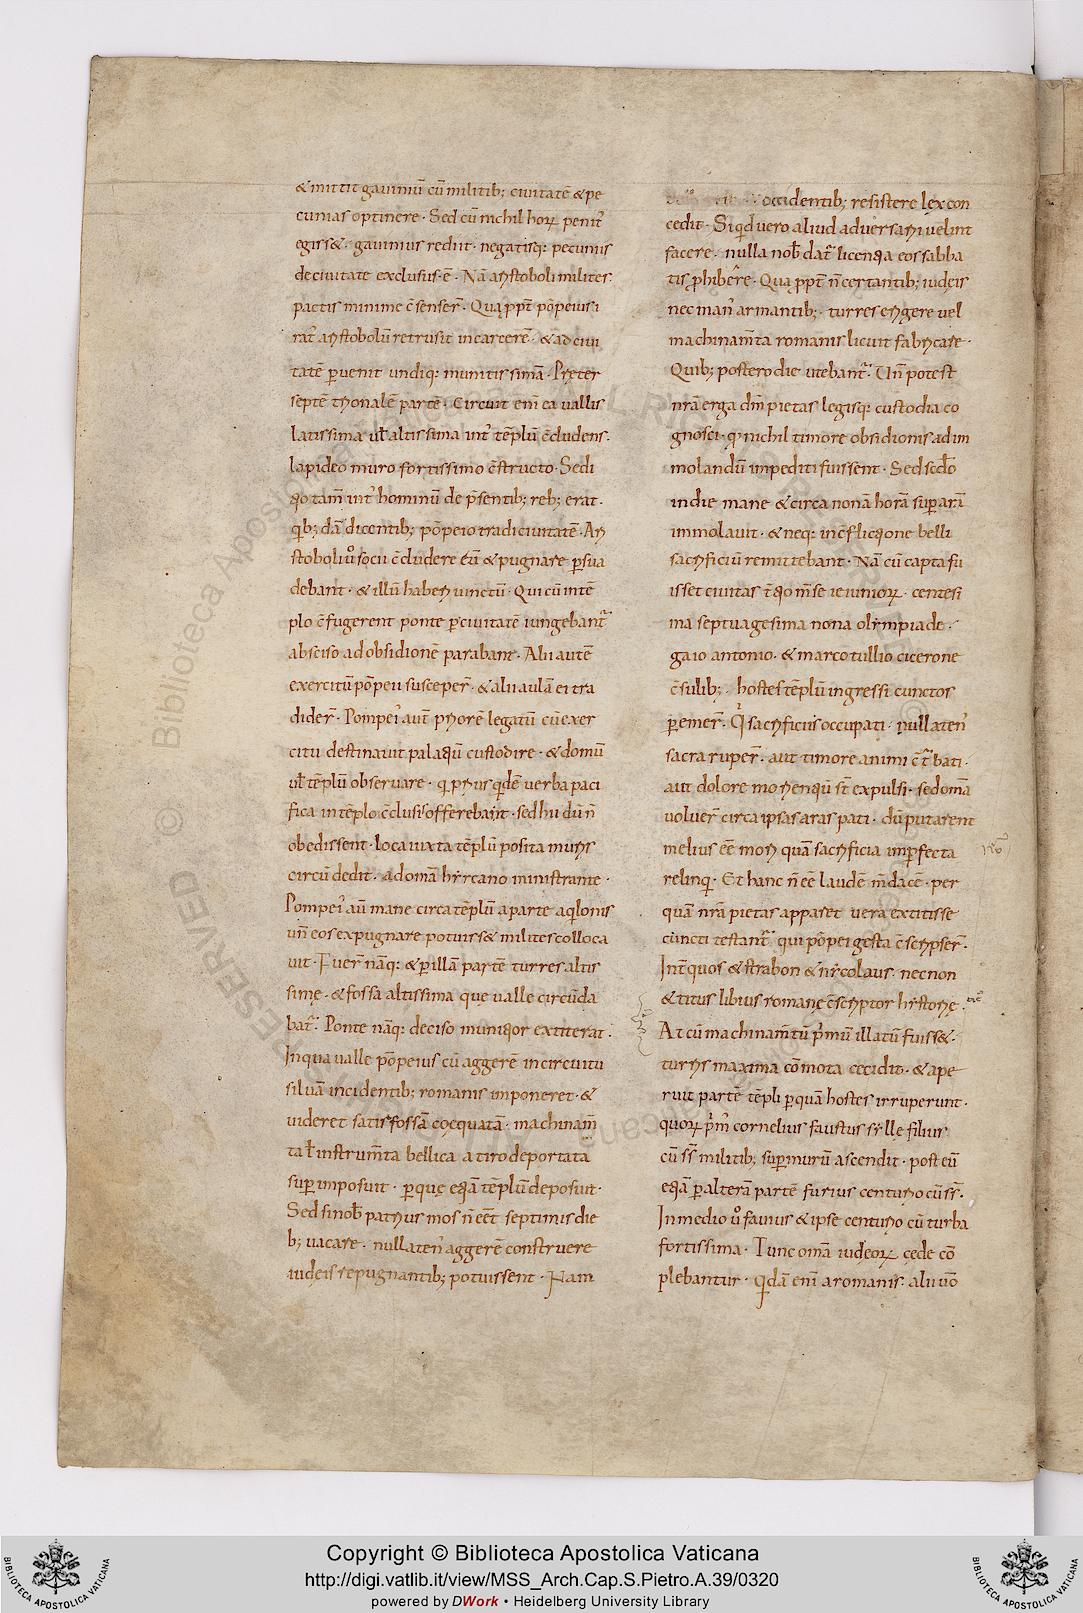 & mittit gauiniū cū militib; ciuitatē & pe
cunias optinere · Sed cū nichil hoꝝ penit᾽
egiss& · gauinius rediit · negatisq: pecuniis
de ciuitate exclusus ē · Nā aristoboli milites
pactis minime c̄senser̄ · Quą ppt̄ pōpeius i
rat᾽ aristobolū retrusit in carcerē · & ad ciui
tatē ꝑuenit undiq: munitissimā · Pręter
septētrionalē partē · Circuit enī ea uallis
latissima ul̄ altissima int᾽ tēplū c̄cludens ·
lapideo muro fortissimo c̄structo · Sedi
tio tam̄ int᾽ hominū de p̄sentib; reb; erat ·
qib; dā dicentib; pōpeio tradi ciuitatē · Ari
stoboli ŭ socii c̄cludere eū & pugnare ꝑsua
debant · & illū haberi uinctū · Qui cū in tē
plo c̄fugerent ponte ꝑ ciuitatē iungebant᾽
absciso ad obsidionē parabant · Alii autē
exercitū pōpeii susceper̄ · & alii aulā ei tra
dider̄ · Pompei᾽ aut̄ priorē legatū cū exer
citu destinauit palatiū custodire · & domū
ul̄ tēplū obseruare · q prius qdē uerba paci
fica in tēplo c̄clusis offerebant · sed hii dū n̄
obedissent · loca iuxta tēplū posita muris
circūdedit · ad omā hyrcano ministrante ·
Pompei᾽ aū mane circa tēplū a parte aqlonis
un̄ eos expugnare potuiss& milites colloca
uit · Fuer̄ nāq: & ꝑ illā partē turres altis
simę · & fossa altissima que ualle circūda
bat᾽ · Ponte nāq: deciso munitior extiterat ·
In qua ualle pōpeius cū aggerē in circuitu
siluā incidentib; romanis imponeret · &
uideret satis fossā coęquatā · machinam̄
tal̄ instrum̄ta bellica a tiro deportata
suꝑimposuit · ꝑ quę etiā tēplū deposuit ·
Sed si nob̄ patrius mos n̄ eēt septimis die
b; uacare · nullaten᾽ aggerē construere
iudęis repugnantib; potuissent · Nam
occidentib; resistere lex con
cedit · Si qd uero aliud aduersarii uelint
facere · nulla nob̄ dat᾽ licentia eos sabba
tis phibere · Quą ppt̄ n̄ certantib; iudęis
nec man᾽ armantib; · turres erigere uel
machinam̄ta romanis licuit fabricare ·
Quib; postero die utebant᾽ · Un̄ potest
nr̄a erga dm̄ pietas legisq: custodia co
gnosci · q nichil timore obsidionis ad im
molandū impediti fuissent · Sed scdo
in die mane & circa nonā horā suꝑ arā
immolauit · & neq: in c̄flictione belli
sacrificiū remittebant · Nā cū capta fu
isset ciuitas t̄tio m̄se ieiunioꝝ · centesi
ma septuagesima nona olympiade ·
gaio antonio · & marco tullio cicerone
c̄sulib; · hostes tēplū ingressi cunctos
ꝑemer̄ · Qi sacrificiis occupati · nullaten᾽
sacra ruper̄ · aut timore animi c̄t᾽bati ·
aut dolore morientiū st̄ expulsi · sed omā
uoluer̄ circa ipsas aras pati · dū putarent
melius eē mori quā sacrificia imperfecta
relinqi · Et hanc n̄ eē laudē m̄dacē · per
quā nr̄a pietas apparet uera extitisse
cuncti testant᾽ qui pōpei gesta c̄scripser̄ ·
Int᾽ quos & strabon & nycolaus · necnon
& titus liuius romanę c̄scriptor hystorię ·
At cū machinam̄tū p̄mū illatū fuiss& ·
turris maxima cōmota cecidit · & ape
ruit partē tēpli ꝑ quā hostes irruperunt ·
quoꝝ p̄m᾽ cornelius faustus sylle filius
cū ss̄ militib; suꝑ murū ascendit · post eū
etiā ꝑ alterā partē furius centurio cū ss̄ ·
In medio ŭ fauius & ipse centurio cū turba
fortissima · Tunc omā iudęoꝝ cęde cō
plebantur · qdā enī a romanis · alii ŭo
Copyright © Biblioteca Apostolica Vaticana
http://digi.vatlib.it/view/MSS_Arch.Cap.S.Pietro.A.39/0320
powered by DWork • Heidelberg University Library
BIBLIOTECA APOSTOLICA VATICANA
BIBLIOTECA APOSTOLICA VATICANA